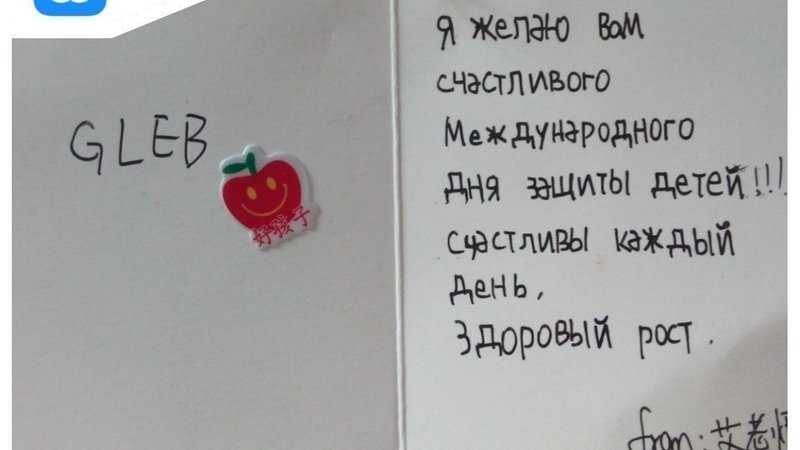 GLEB
好孩子
Я желаю вам
счастливого
Международного
Дня защиты детей!!!
Счастливы каждый
день,
Здоровый рост.
from: 艾